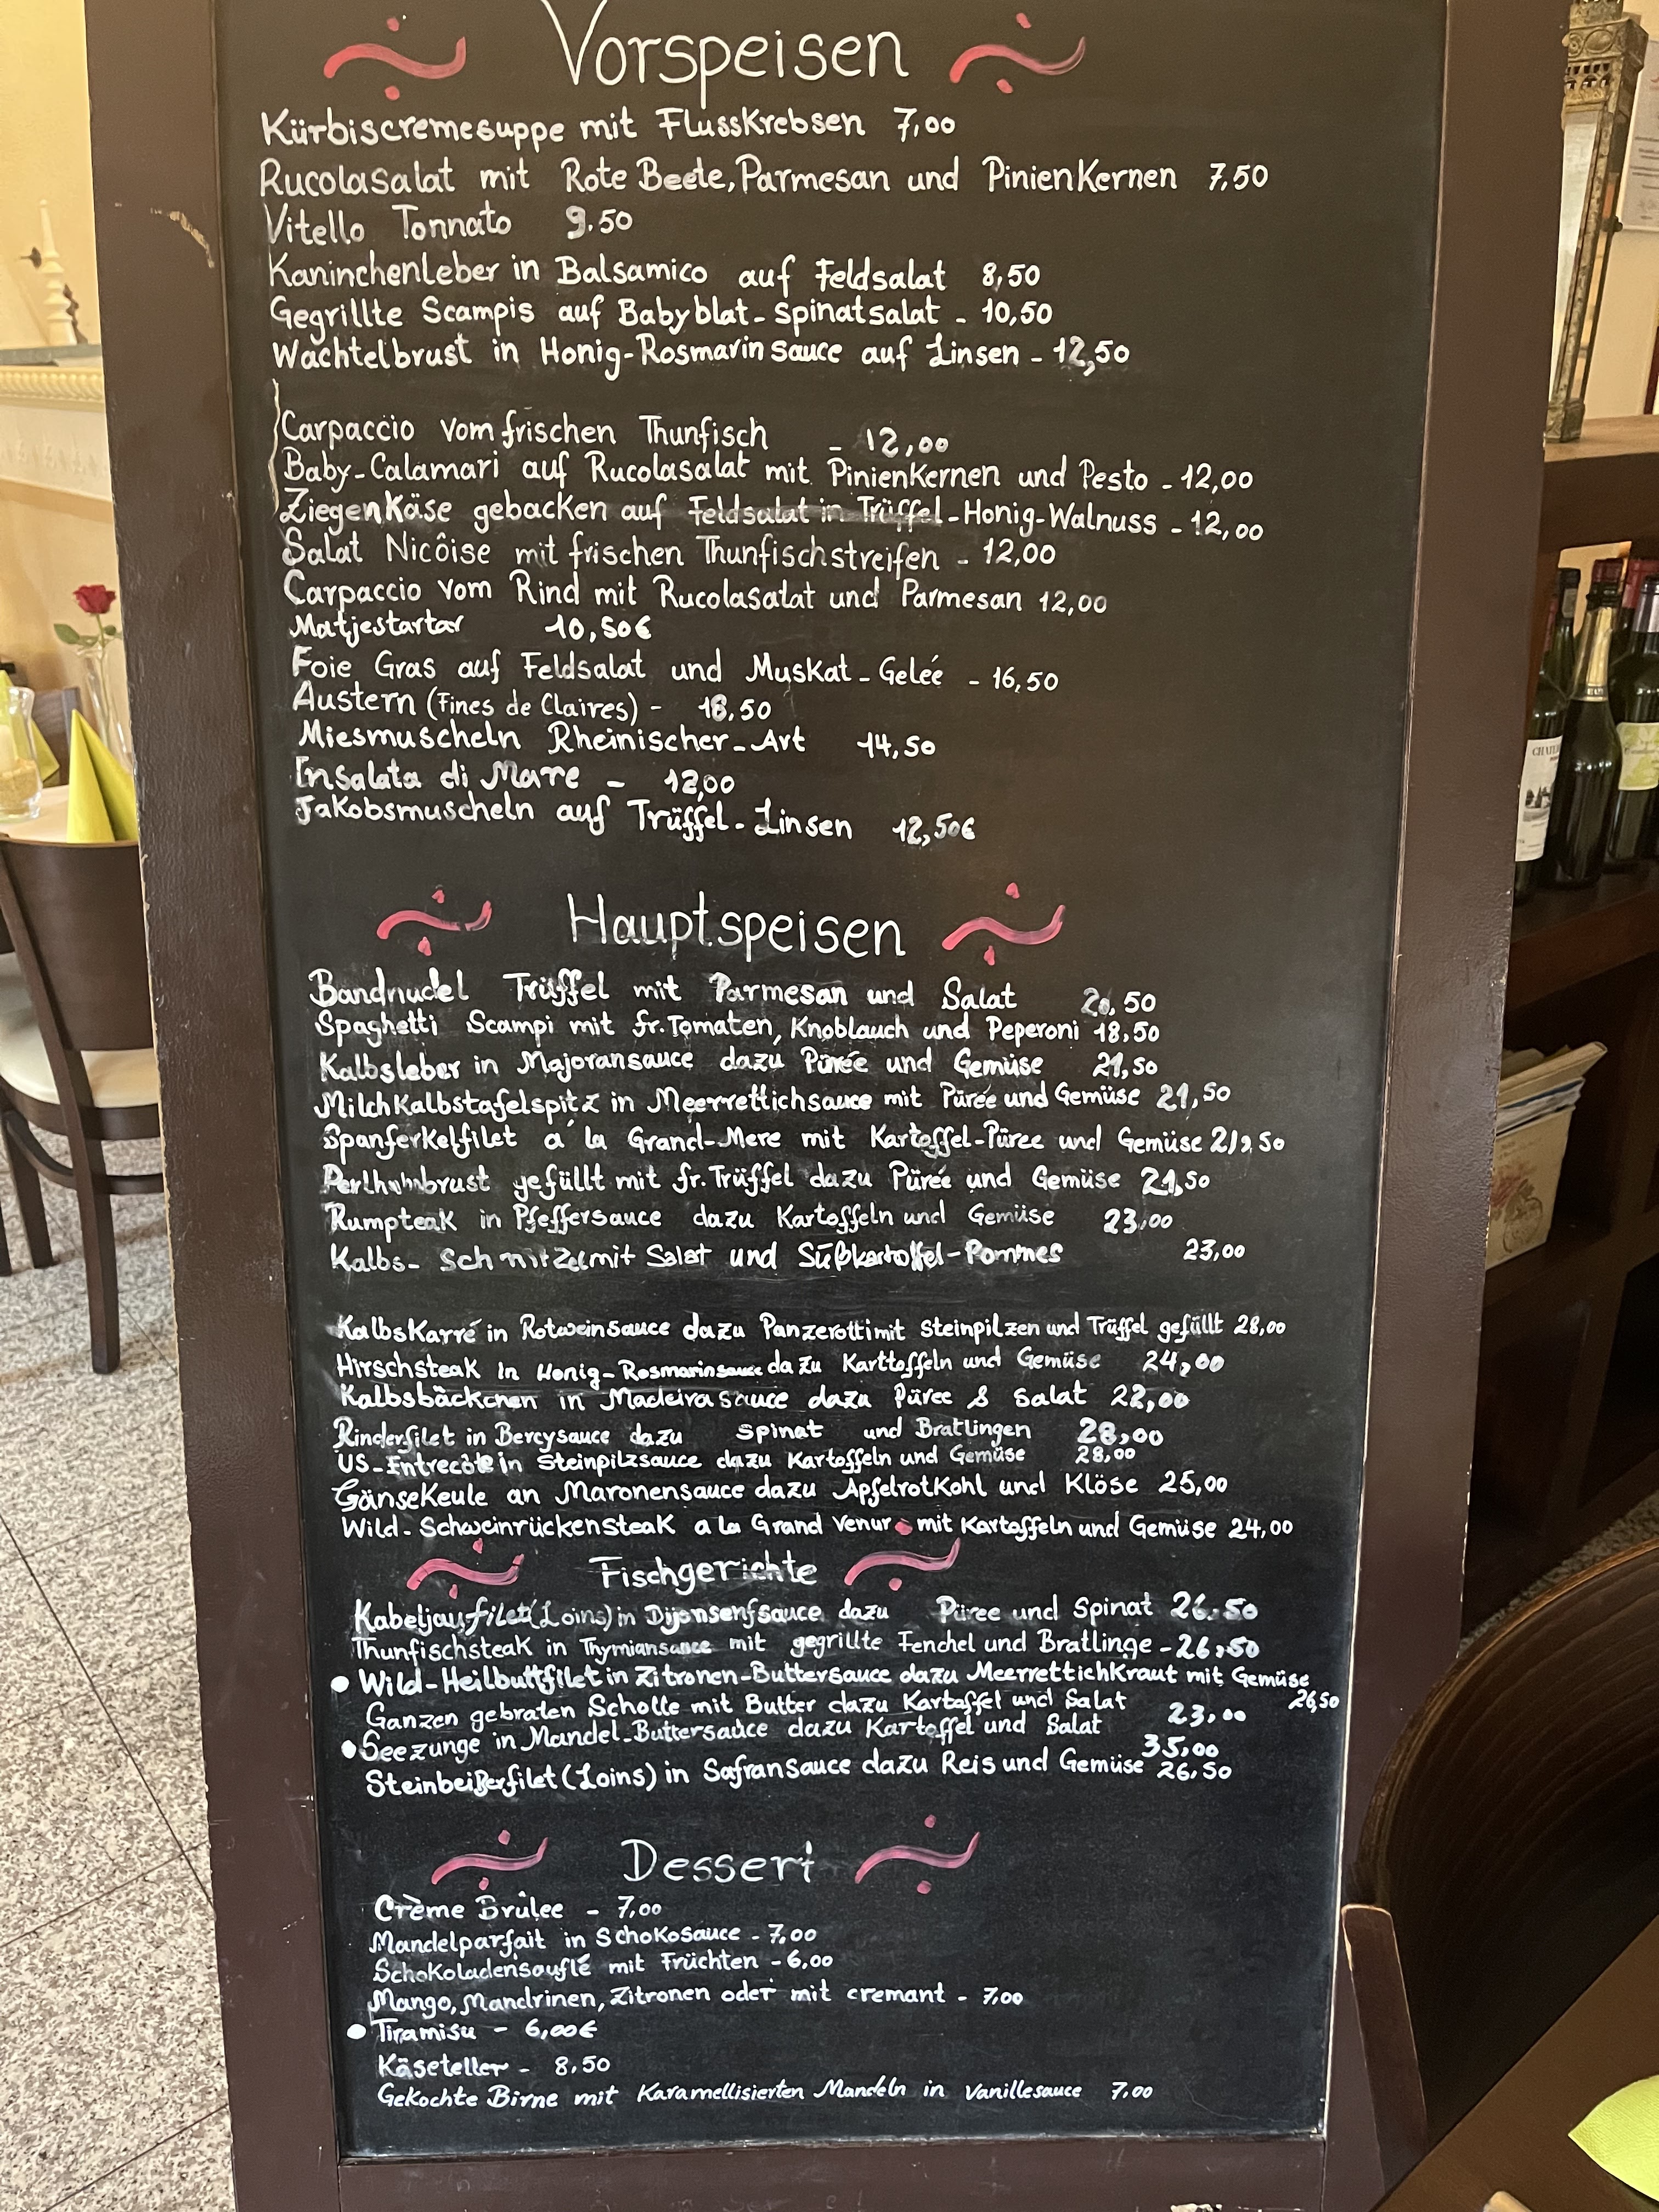 Vorspeisen
Kürbiscremesuppe mit Flusskrebsen 7,00
Rucolasalat mit Rote Beete, Parmesan und Pinienkernen 7,50
Vitello Tonnato 9.50
Kaninchenleber in Balsamico auf Feldsalat 8,50
Gegrillte Scampis auf Babyblat-Spinatsalat - 10,50
Wachtelbrust in Honig-Rosmarin sauce auf Linsen - 12,50
Carpaccio vom frischen Thunfisch - 12,00
Baby-Calamari auf Rucolasalat mit Pinienkernen und Pesto - 12,00
Ziegenkäse gebacken auf Feldsalat in Trüffel-Honig-Walnuss - 12,00
Salat Nicôise mit frischen Thunfischstreifen - 12,00
Carpaccio vom Rind mit Rucolasalat und Parmesan 12,00
Matjestartar 10,50€
Foie Gras auf Feldsalat und Muskat-Geleé - 16,50
Austern (Fines de Claires) - 18,50
Miesmuscheln Rheinischer-Art 14,50
Insalata di Mare - 12,00
Jakobsmuscheln auf Trüffel-Linsen 12,50€
Hauptspeisen
Bandnudel Trüffel mit Parmesan und Salat 20,50
Spaghetti Scampi mit fr. Tomaten, Knoblauch und Peperoni 18,50
Kalbsleber in Majoransauce dazu Pürée und Gemüse 21,50
Milchkalbstafelspitz in Meerrettichsauce mit Pürée und Gemüse 21,50
Spanferkelfilet a´ la Grand-Mere mit Kartoffel-Püree und Gemüse 21,50
Perlhuhnbrust gefüllt mit fr. Trüffel dazu Püreé und Gemüse 21,50
Rumpteak in Pfeffersauce dazu Kartoffeln und Gemüse 23,00
Kalbs- Schnitzel mit Salat und Süßkartoffel-Pommes 23,00
Kalbskarré in Rotweinsauce dazu Panzerotti mit Steinpilzen und Trüffel gefüllt 28,00
Hirschsteak in Honig-Rosmarinsauce dazu Karttoffeln und Gemüse 24,00
Kalbsbäckchen in Madeira sauce dazu Püree & Salat 22,00
Rinderfilet in Bercysauce dazu Spinat und Bratlingen 28,00
US-Entrecôte in Steinpilzsauce dazu Kartoffeln und Gemüse 28,00
Gänsekeule an Maronensauce dazu Apfelrotkohl und Klöse 25,00
Wild-Schweinrückensteak a la Grand Venur mit Kartoffeln und Gemüse 24,00
Fischgerichte
Kabeljaufilet (Loins) in Dijonsenfsauce dazu Püree und Spinat 26.50
Thunfischsteak in Thymiansauce mit gegrillte Fenchel und Bratlinge - 26,50
• Wild-Heilbuttfilet in Zitronen-Buttersauce dazu Meerrettichkraut mit Gemüse 26,50
Ganzen gebraten Scholle mit Butter dazu Kartoffel und Salat 23,00
• Seezunge in Mandel-Buttersauce dazu Kartoffel und Salat 35,00
Steinbeißerfilet (Loins) in Safransauce dazu Reis und Gemüse 26,50
Dessert
Crème Brûlee - 7,00
Mandelparfait in Schokosauce - 7,00
Schokoladensouflé mit Früchten - 6,00
Mango, Mandrinen, Zitronen oder mit cremant - 7,00
• Tiramisu - 6,00€
Käseteller - 8.50
Gekochte Birne mit Karamellisierten Mandeln in Vanillesauce 7.00